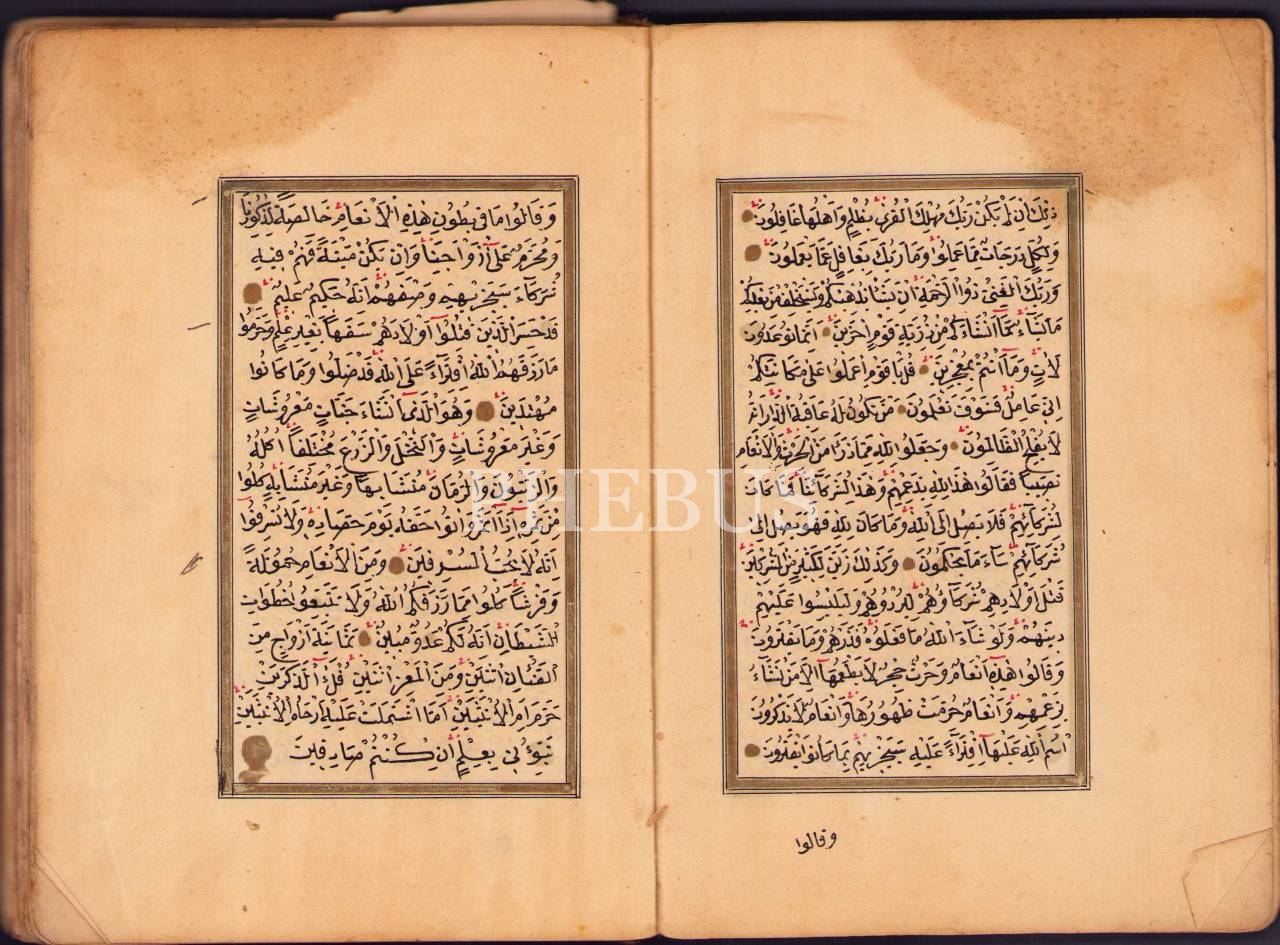 ذٰلِكَ اَنْ لَمْ يَكُنْ رَبُّكَ مُهْلِكَ الْقُرٰى بِظُلْمٍ وَاَهْلُهَا غَافِلُونَ
وَلِكُلٍّ دَرَجَاتٌ مِمَّا عَمِلُوا وَمَا رَبُّكَ بِغَافِلٍ عَمَّا يَعْمَلُونَ
وَرَبُّكَ الْغَنِيُّ ذُو الرَّحْمَةِ اِنْ يَشَأْ يُذْهِبْكُمْ وَيَسْتَخْلِفْ مِنْ بَعْدِكُمْ
مَا يَشَاءُ كَمَا اَنْشَاَكُمْ مِنْ ذُرِّيَّةِ قَوْمٍ اٰخَرِينَ اِنَّمَا تُوعَدُونَ
لَاٰتٍ وَمَا اَنْتُمْ بِمُعْجِزِينَ قُلْ يَا قَوْمِ اعْمَلُوا عَلٰى مَكَانَتِكُمْ
اِنِّي عَامِلٌ فَسَوْفَ تَعْلَمُونَ مَنْ تَكُونُ لَهُ عَاقِبَةُ الدَّارِ اِنَّهُ
لَا يُفْلِحُ الظَّالِمُونَ وَجَعَلُوا لِلّٰهِ مِمَّا ذَرَاَ مِنَ الْحَرْثِ وَالْاَنْعَامِ
نَصِيبًا فَقَالُوا هٰذَا لِلّٰهِ بِزَعْمِهِمْ وَهٰذَا لِشُرَكَائِنَا فَمَا كَانَ
لِشُرَكَائِهِمْ فَلَا يَصِلُ اِلَى اللّٰهِ وَمَا كَانَ لِلّٰهِ فَهُوَ يَصِلُ اِلٰى
شُرَكَائِهِمْ سَاءَ مَا يَحْكُمُونَ وَكَذٰلِكَ زَيَّنَ لِكَثِيرٍ مِنَ الْمُشْرِكِينَ
قَتْلَ اَوْلَادِهِمْ شُرَكَاؤُهُمْ لِيُرْدُوهُمْ وَلِيَلْبِسُوا عَلَيْهِمْ
دِينَهُمْ وَلَوْ شَاءَ اللّٰهُ مَا فَعَلُوهُ فَذَرْهُمْ وَمَا يَفْتَرُونَ
وَقَالُوا هٰذِهِ اَنْعَامٌ وَحَرْثٌ حِجْرٌ لَا يَطْعَمُهَا اِلَّا مَنْ نَشَاءُ
بِزَعْمِهِمْ وَاَنْعَامٌ حُرِّمَتْ ظُهُورُهَا وَاَنْعَامٌ لَا يَذْكُرُونَ
اسْمَ اللّٰهِ عَلَيْهَا افْتِرَاءً عَلَيْهِ سَيَجْزِيهِمْ بِمَا كَانُوا يَفْتَرُونَ
وقالوا
وَقَالُوا مَا فِي بُطُونِ هٰذِهِ الْاَنْعَامِ خَالِصَةٌ لِذُكُورِنَا
وَمُحَرَّمٌ عَلٰى اَزْوَاجِنَا وَاِنْ يَكُنْ مَيْتَةً فَهُمْ فِيهِ
شُرَكَاءُ سَيَجْزِيهِمْ وَصْفَهُمْ اِنَّهُ حَكِيمٌ عَلِيمٌ
قَدْ خَسِرَ الَّذِينَ قَتَلُوا اَوْلَادَهُمْ سَفَهًا بِغَيْرِ عِلْمٍ وَحَرَّمُوا
مَا رَزَقَهُمُ اللّٰهُ افْتِرَاءً عَلَى اللّٰهِ قَدْ ضَلُّوا وَمَا كَانُوا
مُهْتَدِينَ وَهُوَ الَّذِي اَنْشَاَ جَنَّاتٍ مَعْرُوشَاتٍ
وَغَيْرَ مَعْرُوشَاتٍ وَالنَّخْلَ وَالزَّرْعَ مُخْتَلِفًا اُكُلُهُ
وَالزَّيْتُونَ وَالرُّمَّانَ مُتَشَابِهًا وَغَيْرَ مُتَشَابِهٍ كُلُوا
مِنْ ثَمَرِهِ اِذَا اَثْمَرَ وَاٰتُوا حَقَّهُ يَوْمَ حَصَادِهِ وَلَا تُسْرِفُوا
اِنَّهُ لَا يُحِبُّ الْمُسْرِفِينَ وَمِنَ الْاَنْعَامِ حَمُولَةً
وَفَرْشًا كُلُوا مِمَّا رَزَقَكُمُ اللّٰهُ وَلَا تَتَّبِعُوا خُطُوَاتِ
الشَّيْطَانِ اِنَّهُ لَكُمْ عَدُوٌّ مُبِينٌ ثَمَانِيَةَ اَزْوَاجٍ مِنَ
الضَّأْنِ اثْنَيْنِ وَمِنَ الْمَعْزِ اثْنَيْنِ قُلْ ءٰالذَّكَرَيْنِ
حَرَّمَ اَمِ الْاُنْثَيَيْنِ اَمَّا اشْتَمَلَتْ عَلَيْهِ اَرْحَامُ الْاُنْثَيَيْنِ
نَبِّؤُنِي بِعِلْمٍ اِنْ كُنْتُمْ صَادِقِينَ
PHEBUS